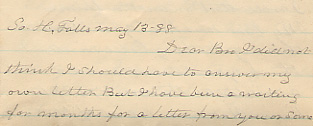 So. H. Falls May 13-88
Dear Bro I did not
think I should have to answer my
own letter But I have been a waiting
for months for a letter from you or